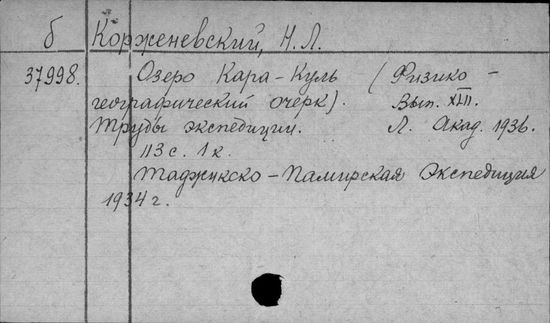 б Корженевский, Н. Л.
37998. Озеро Кара-Куль (Физико-
географический очерк). Вып. XLII.
Труды экспедиции. Л. Акад. 1936.
113 с. 1 к.
Таджикско-Памирская Экспедиция
1934 г.